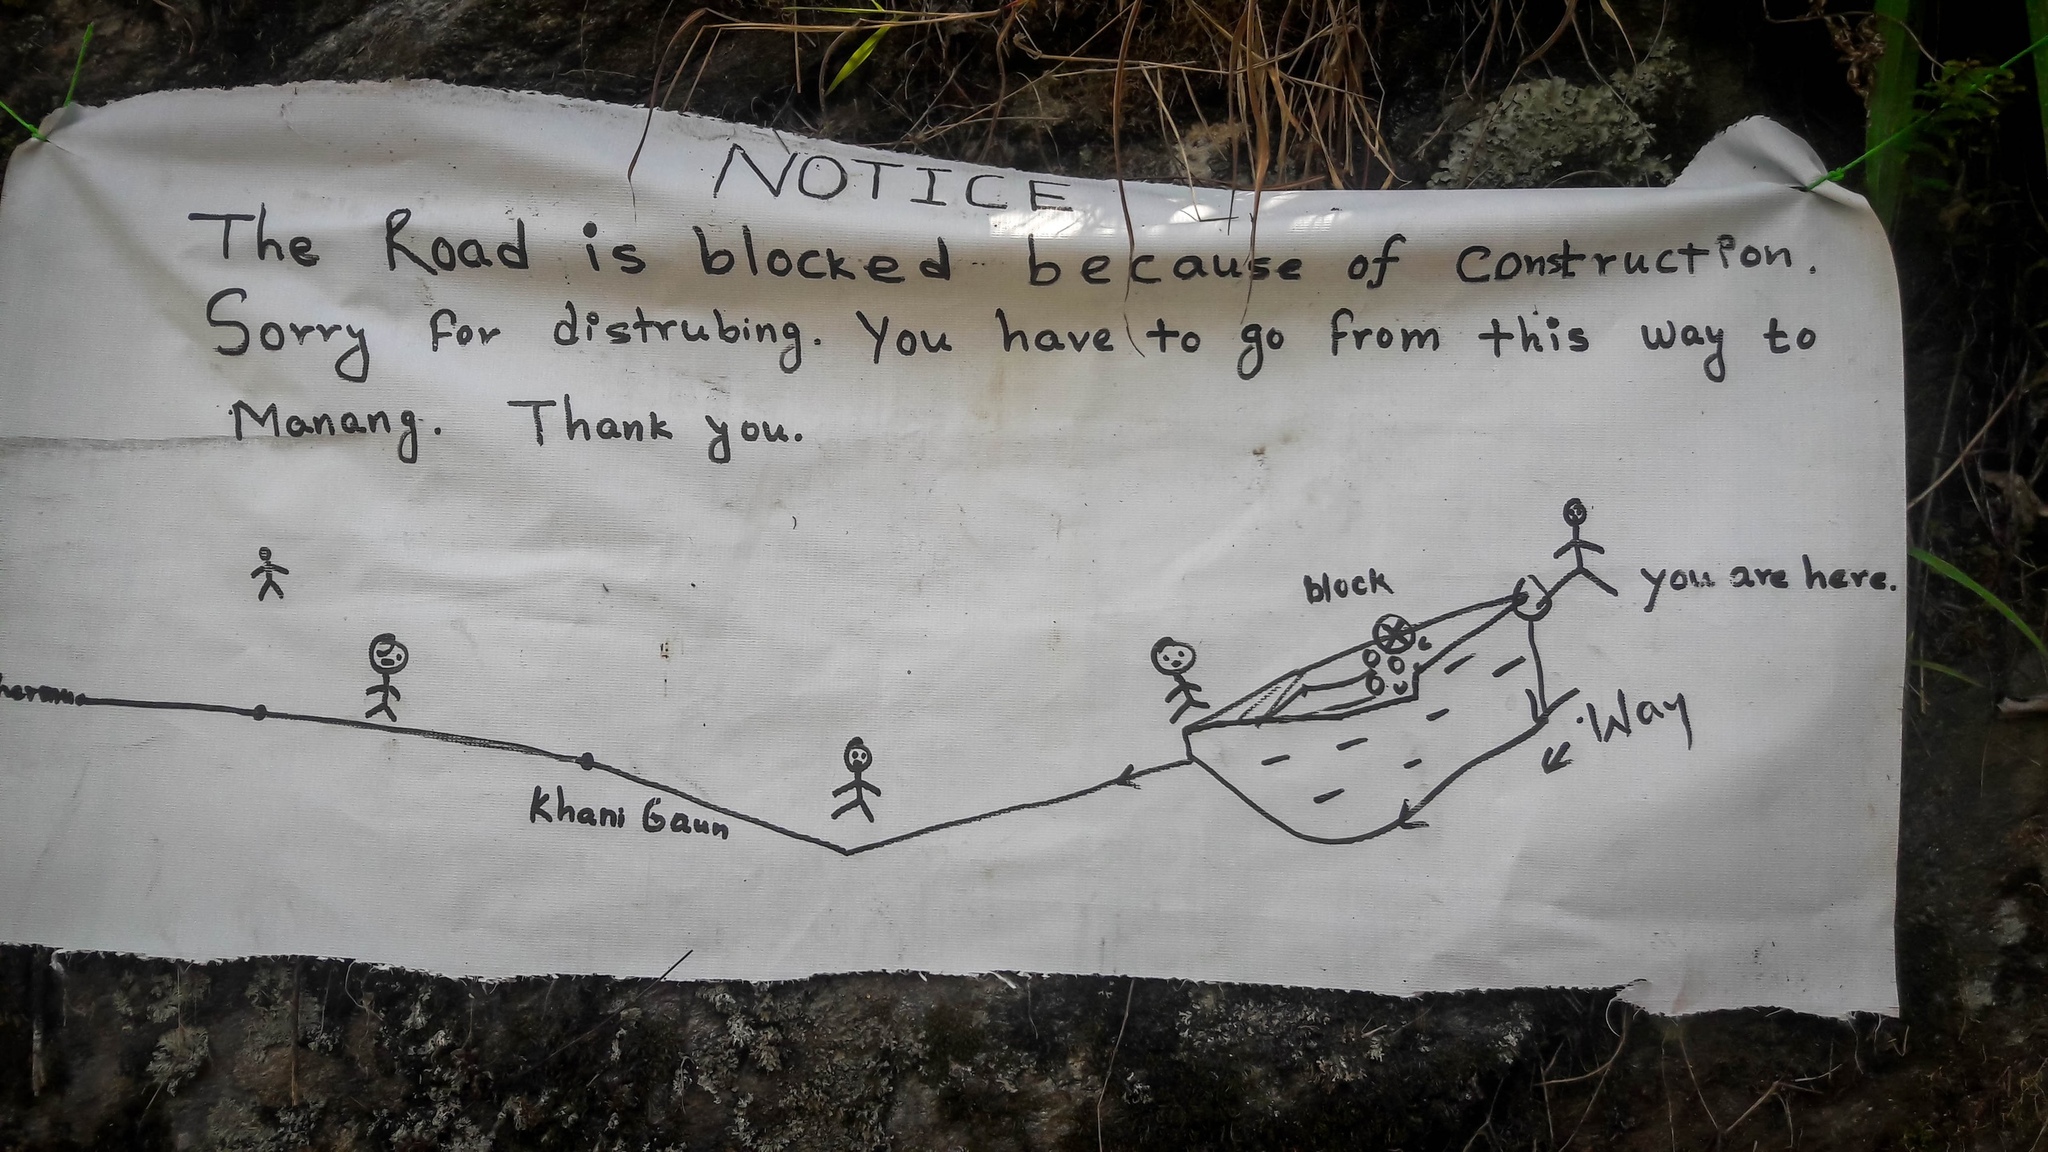 NOTICE
The Road is blocked because of construction.
Sorry for distrubing. You have to go from this way to
Manang. Thank you.
block
you are here.
Way
Khani Gaun